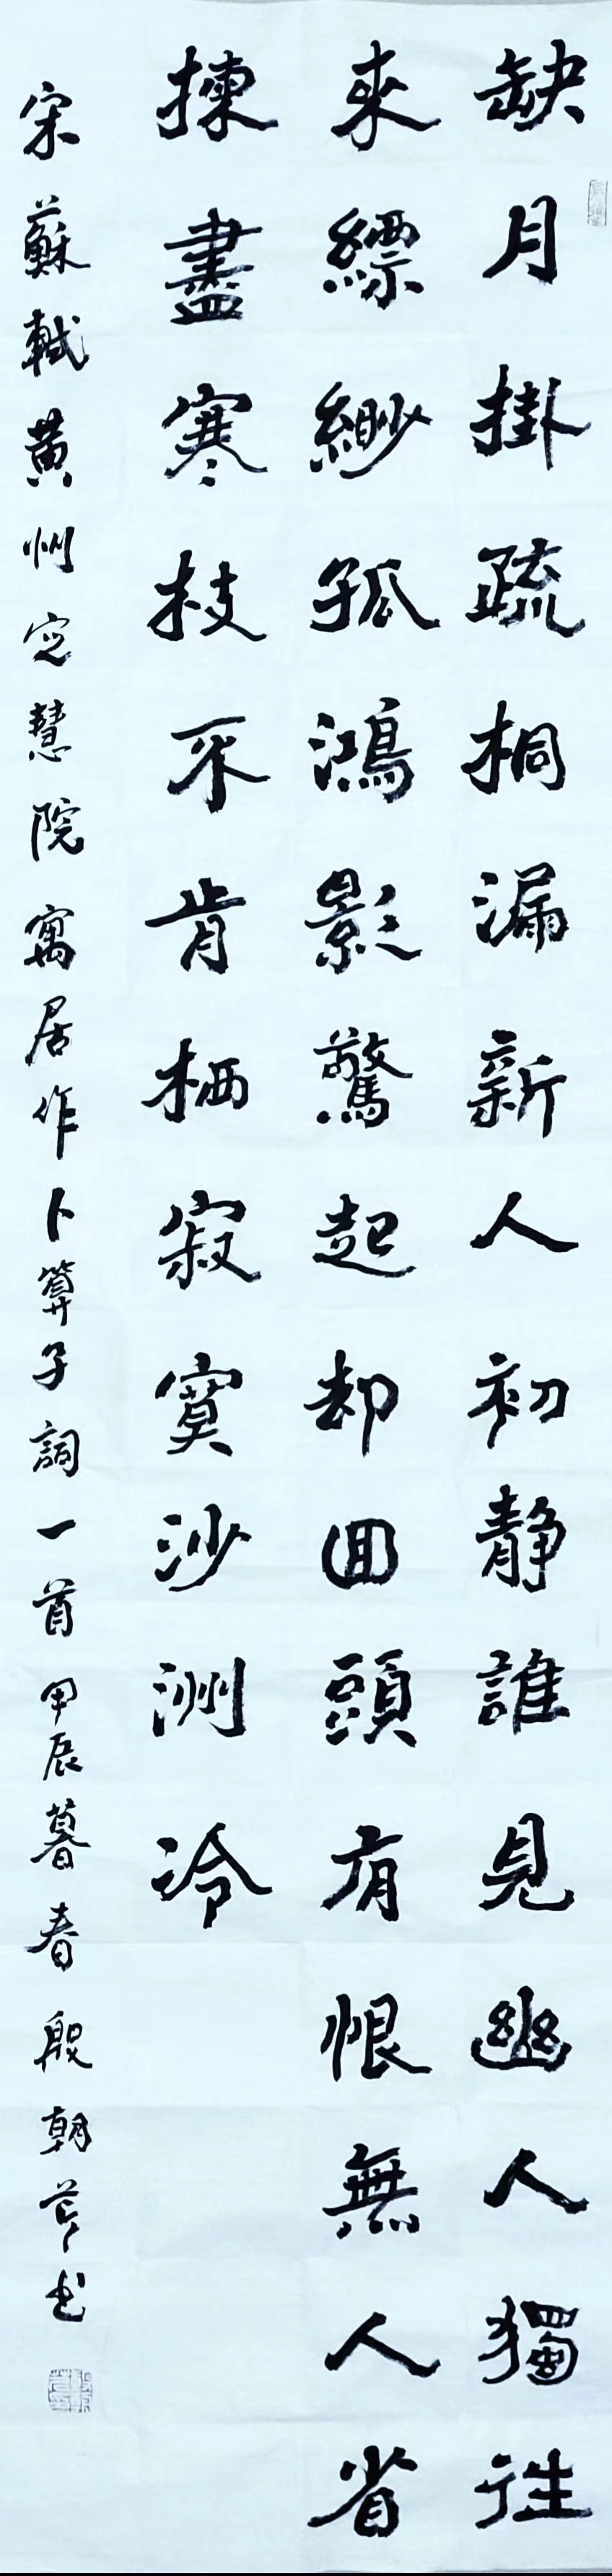 缺月掛疏桐漏新人初静誰見幽人獨往
來縹緲孤鴻影驚起却回頭有恨無人省
揀盡寒枝不肯栖寂寞沙洲冷
宋蘇軾黄州定慧院寓居作卜算子詞一首甲辰暮春殷朝芹书